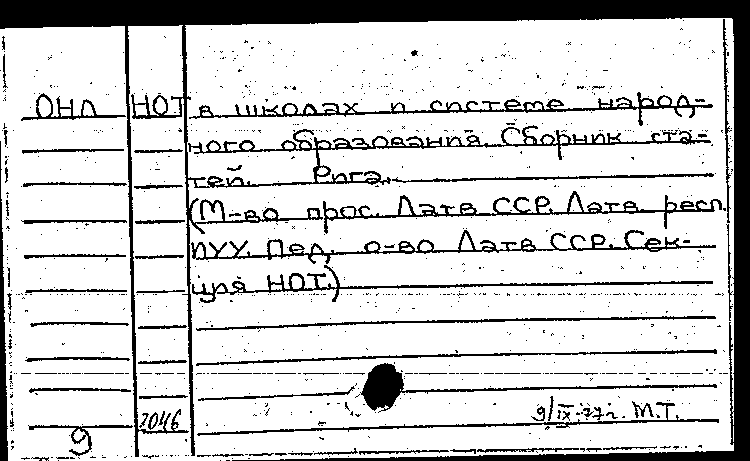 ОНЛ НОТ в школах и системе народ-
ного образования. Сборник ста-
тей. Рига,
(М-во прос. Латв ССР. Латв респ.
ИУУ. Пед. о-во Латв ССР. Сек-
ция НОТ.)
2046 9/IX-77г. М.Т.
9